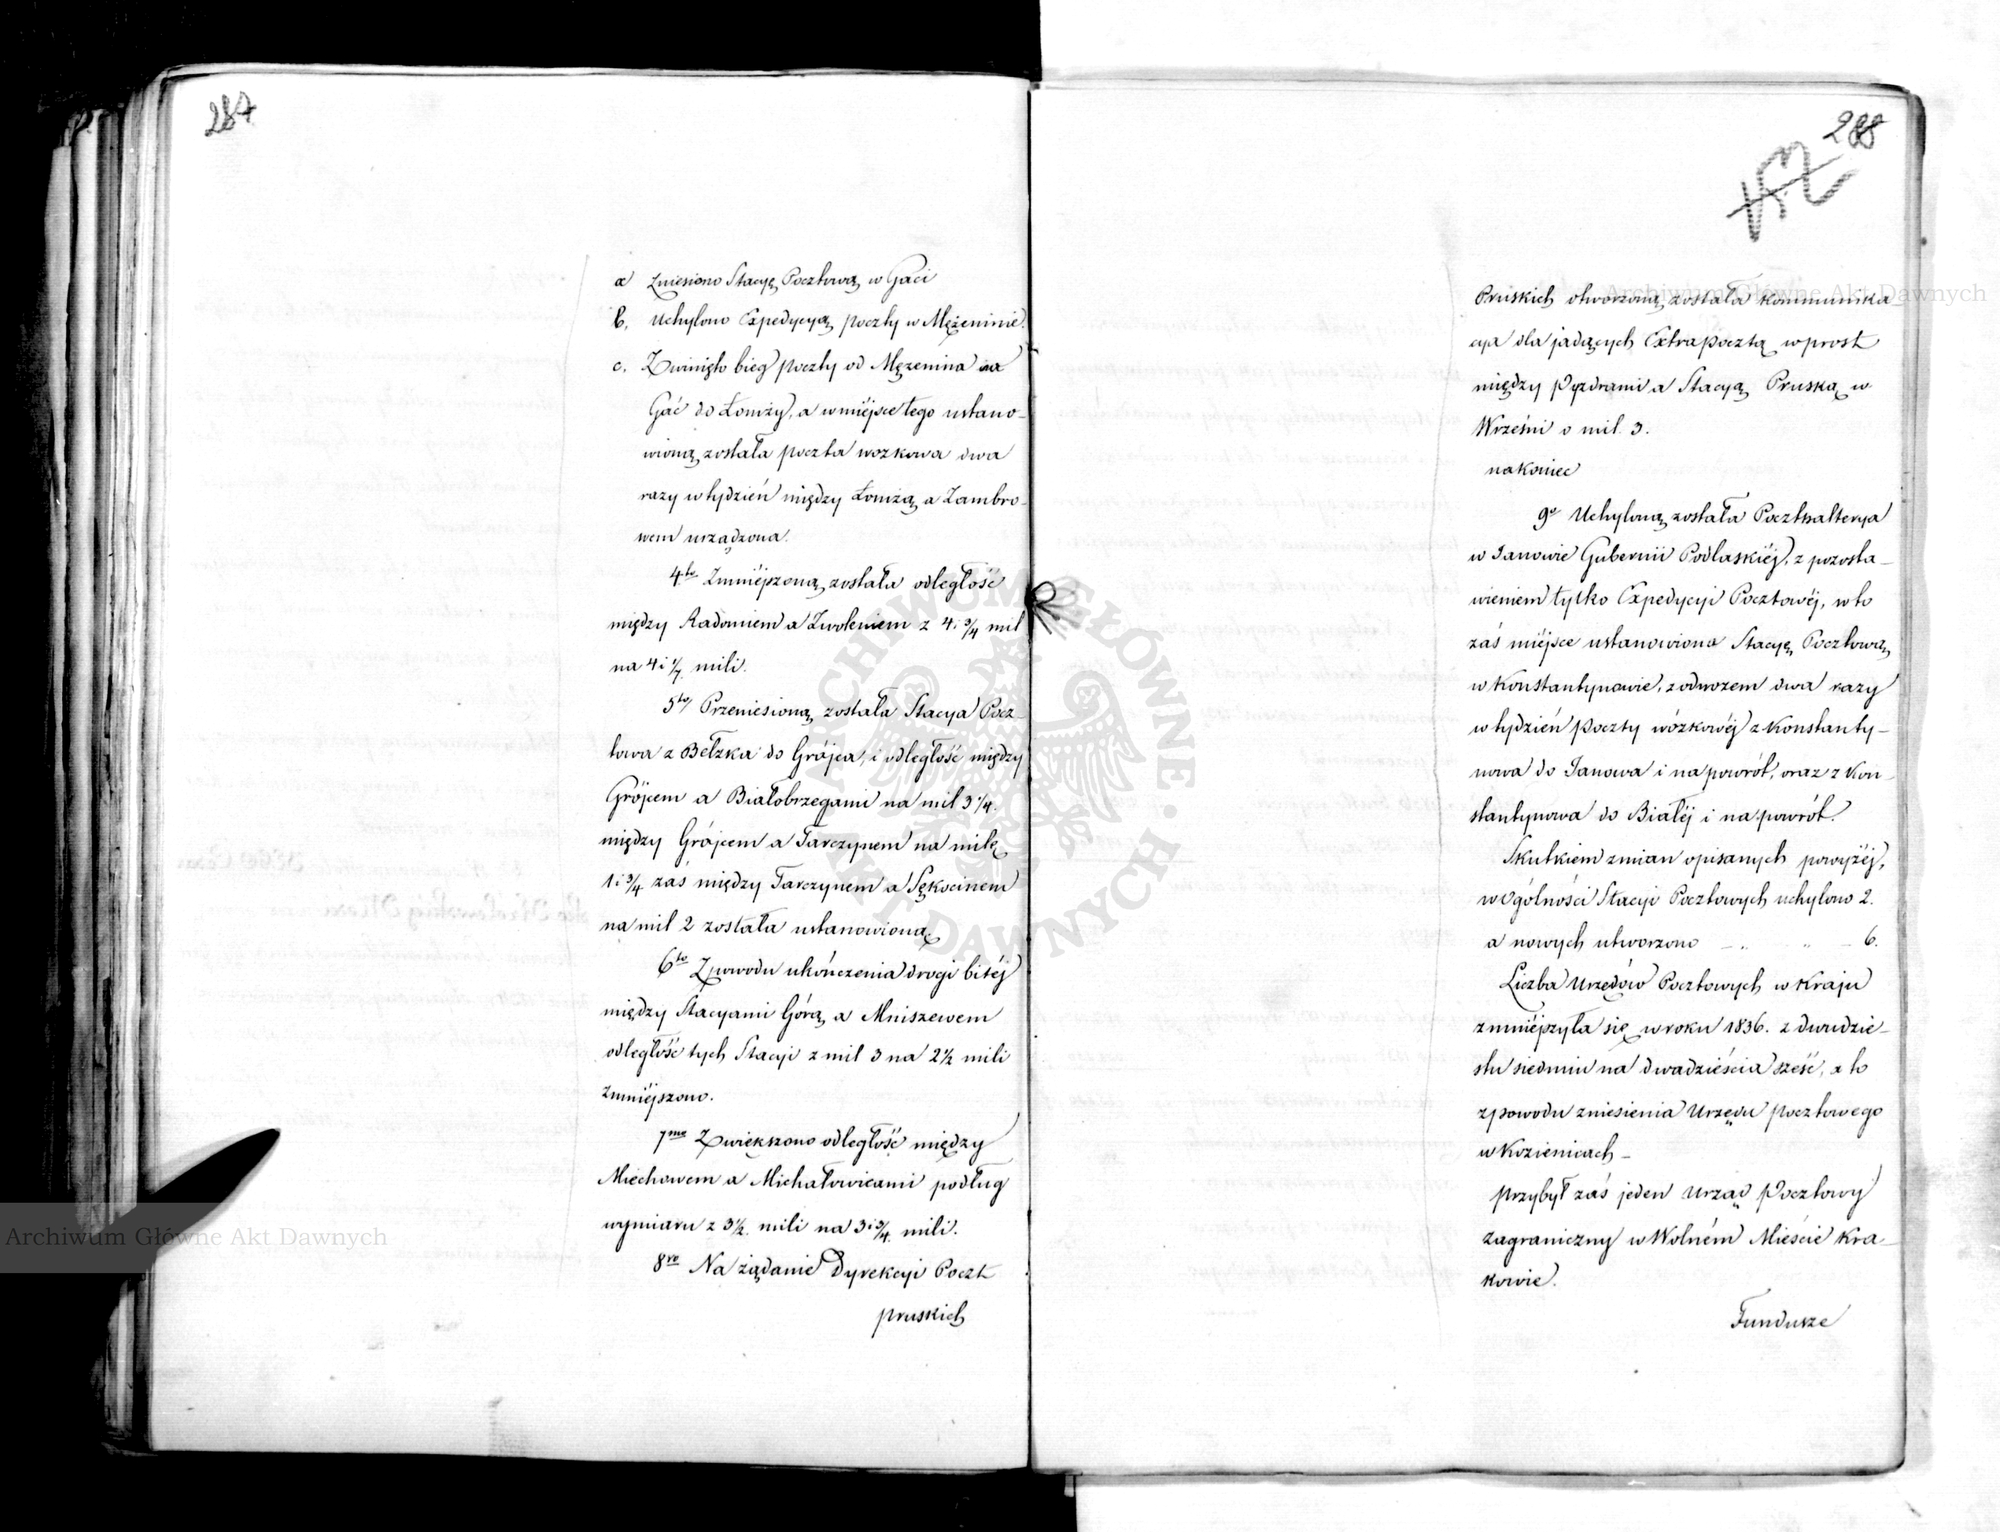 287
a Zniesiono Stacyę Pocztową w Gaci
b, Uchylono Expedycyą poczty w Mężeninie.
c, Zwinięto bieg poczty od Męzenina na
Gać do Łomży, a w miejsce tego ustano-
wioną została poczta wozkowa dwa
razy w tydzień między Łomżą a Zambro-
wem urządzona.
4to Zmniejszoną została odległość
między Radomiem a Zwoleniem z 4 i 3/4 mil
na 4 i 1/7 mili.
5to/ Przeniesioną została Stacya Pocz-
towa z Bełzka do Grójca, i odległość między
Grójcem a Białobrzegami na mil 3 1/4.
między Grójcem a Tarczynem na milę
1 i 3/4 zaś między Tarczynem a Sękocinem
na mil 2 została ustanowioną.
6to Z powodu ukończenia drogi bitéj
między Stacyami Górą a Mniszewem
odległość tych Stacyi z mil 3 na 2 1/2 mili
zmniejszono.
7mo Zwiększono odległość między
Miechowem a Michałowicami podług
wymiaru z 3 1/2. mili na 3 i 3/4. mili.
8vo Na żądanie Dyrekcyi Poczt
pruskich
288
Pruskich otworzoną została kommunika
cya dla jadących Extrapocztą wprost
między Pyzdrami a Stacyą Pruską w
Wrześni o mil. 3.
nakoniec
9o Uchyloną została Poczthalterya
w Janowie Gubernii Podlaskiéj, z pozosta-
wieniem tylko Expedycyi Pocztowéj, w to
zaś miejsce ustanowiono Stacyę Pocztową
w Konstantynowie, z odwozem dwa razy
w tydzień poczty wózkowéj z Konstanty-
nowa do Janowa i napowrót, oraz z Kon-
stantynowa do Białéj i na powrót.
Skutkiem zmian opisanych powyżéj,
w ogólności Stacyi Pocztowych uchylono 2.
a nowych utworzono - „ „ - 6.
Liczba Urzędów Pocztowych w Kraju
zmniejszyła się w roku 1836. z dwudzie-
stu siedmiu na dwadzieścia sześć, a to
z powodu zniesienia Urzędu pocztowego
w Kozienicach -
przybył zaś jeden Urząd Pocztowy
zagraniczny w Wolném Mieście Kra-
kowie.
Fundusze
Archiwum Główne Akt Dawnych
Archiwum Główne Akt Dawnych
ARCHIWUM GŁÓWNE AKT DAWNYCH